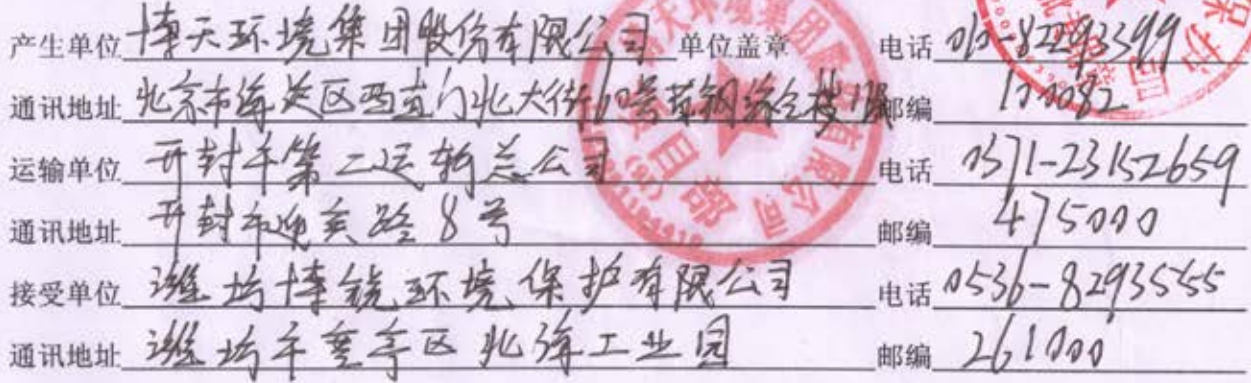 产生单位 博天环境集团股份有限公司 单位盖章 电话 010-82293399
通讯地址 北京市海淀区西直门北大街60号首钢综合楼12层 邮编 100082
运输单位 开封市第二运输总公司 电话 0371-23152659
通讯地址 开封市迎宾路8号 邮编 475000
接受单位 潍坊博锐环境保护有限公司 电话 0536-82935555
通讯地址 潍坊市奎文区北海工业园 邮编 261000
项目部